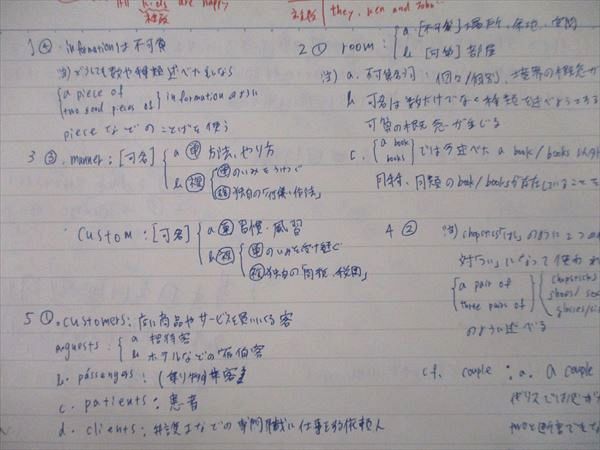 All kids are happy
they, Ken and John
1 ④. informationは不可算
注)どうしても数や種類述べたいなら
{a piece of
two 
pieces of} informationのように
pieceなどのことばを使う
2 ① room : {a [不可算] 場所, 余地, 空間
b [可算] 部屋
注) a. 不可算名詞: 個々/個別, 境界の概念が
b 可名は数だけでなく種類を述べようとする
可算の概念が生じる
c. {a book
books} では今述べた a book / books 以外
同様, 同類の book/booksが存在していることを
3 ③. manner : [可名] {a 単 方法, やり方
b 複 {単のいみをうけつぐ
複独自の「行儀作法」
custom : [可名] {a 単 習慣・風習
b 複 {単のいみを受け継ぐ
複独自の「関税, 税関」
4 ② 注) chopsticks「はし」のように2つの
対「つい」になって使われ
{a pair of
three pairs of} {chopsticks
shoes/
glasses/
のように述べる
5 ①. customers : 店に商品やサービスを買いにくる客
a guests : {a 招待客
b ホテルなどの宿伯客
b. passengers : (乗り物)乗客
c. patients : 患者
d. clients : 弁護士などの専門職に仕事を依頼人
cf. couple : a. a couple
イギリスでは